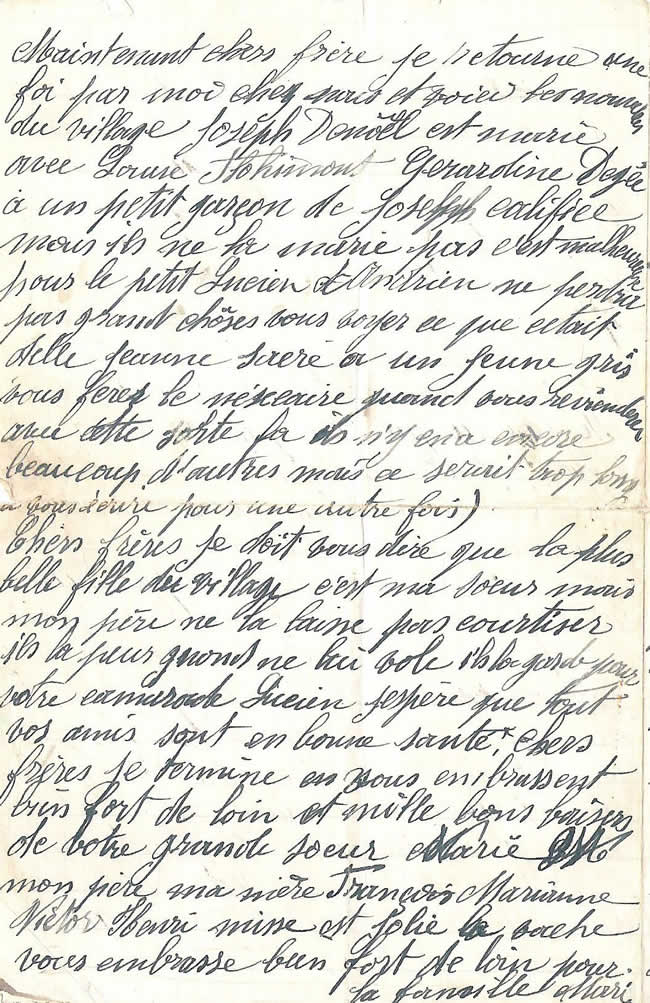 Maintenant chers frère je retourne une
foi par moi chez nous et voici les nouvelles
du village Joseph Denoël est marié
avec Louise Gérardine
à un petit garçon de Joseph califiée
mais ils ne la marie pas c'est malheureux
pour le petit Lucien et Andrien ne perdra
pas grand chôses vous voyer ce que cetait
delle jeanne sacré a un jeune gris
vous ferez le néxceaire quand vous reviendrer
avec cette sorte la ils n'y en a encore
beaucoup d'autres mais ce serait trop long
a vous écrire pour une autre fois)
Chers frères je doit vous dire que la plus
belle fille du village c'est ma soeur mais
mon père ne la laisse pas courtiser
ils la peur quond ne lui vole ils la garde pour
votre camarade Lucien jespère que tout
vos amis sont en bonne santé. chers
frères je termine en vous embrassent
bien fort de loin et mille bons baisers
de votre grande soeur Marie
mon père ma mère François Marianne
Victor Henri misse et folie la vache
vous embrasse bien fort de loin pour
la famille Mari